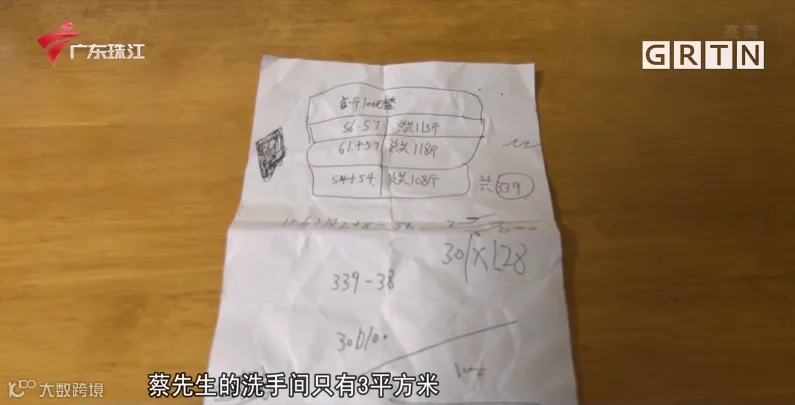 广东珠江
高清
GRTN
56.57 总共113斤
61+57 总共118斤
54+54 总共108斤
共339
301×128
339-38
大数跨境
蔡先生的洗手间只有3平方米